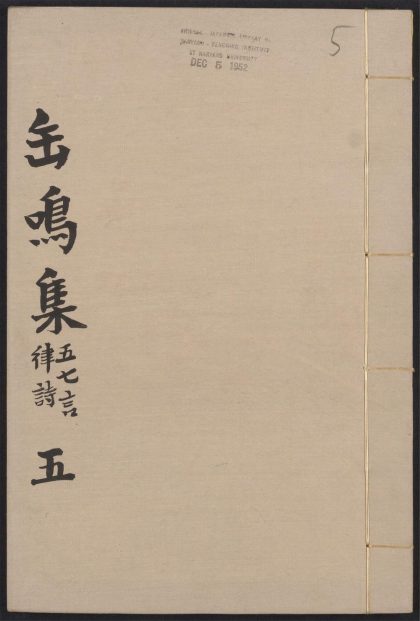 缶鳴集
五七言
律詩
五
CHINESE - JAPANESE LIBRARY OF
HARVARD - YENCHING INSTITUTE
AT HARVARD UNIVERSITY
DEC 5 1952
5